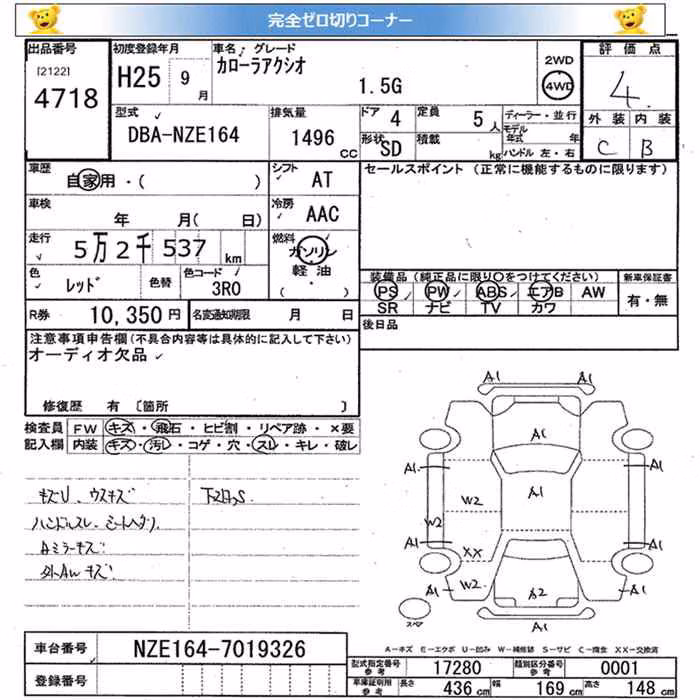 完全ゼロ切りコーナー
出品番号
[2122]
4718
初度登録年月
H25 9月
車名・グレード
カローラアクシオ
1.5G
2WD
4WD
評価点
4.
外装 内装
C B
型式
DBA-NZE164
排気量
1496 cc
ドア 4
定員 5人
形状 SD
積載 kg
ディーラー・並行
モデル年式 年
ハンドル 左・右
車歴
自家用・( )
シフト AT
セールスポイント (正常に機能するものに限ります)
車検
年 月( 日)
冷房 AAC
走行
5万2千537 km
燃料
ガソリン
軽油
( ・ )
色
レッド
色替
色コード
3R0
装備品 (純正品に限り○をつけてください)
PS PW ABS エアB AW
SR ナビ TV カワ
新車保証書
有・無
R券 10,350円
名変通知期限 月 日
後日品
注意事項申告欄(不具合内容等は具体的に記入して下さい)
オーディオ欠品
修復歴 有 〔箇所 〕
検査員記入欄
FW キズ・飛石・ヒビ割・リペア跡・×要
内装 キズ・汚レ・コゲ・穴・スレ・キレ・破レ
キズU、ウスキズ
下廻りS
ハンドルスレ、シートヘタリ
Aミラーキズ
外AWキズ
A1 A1
A1
A1 A1 A1
W2
W2
A1 A1
XX
W2 A2
A1
スペア
A-キズ E-エクボ U-凹み W-補修跡 S-サビ C-腐食 XX-交換済
車台番号 NZE164-7019326
登録番号
型式指定番号 参考 17280
類別区分番号 参考 0001
車庫証明用 参考 長さ 436 cm 幅 169 cm 高さ 148 cm